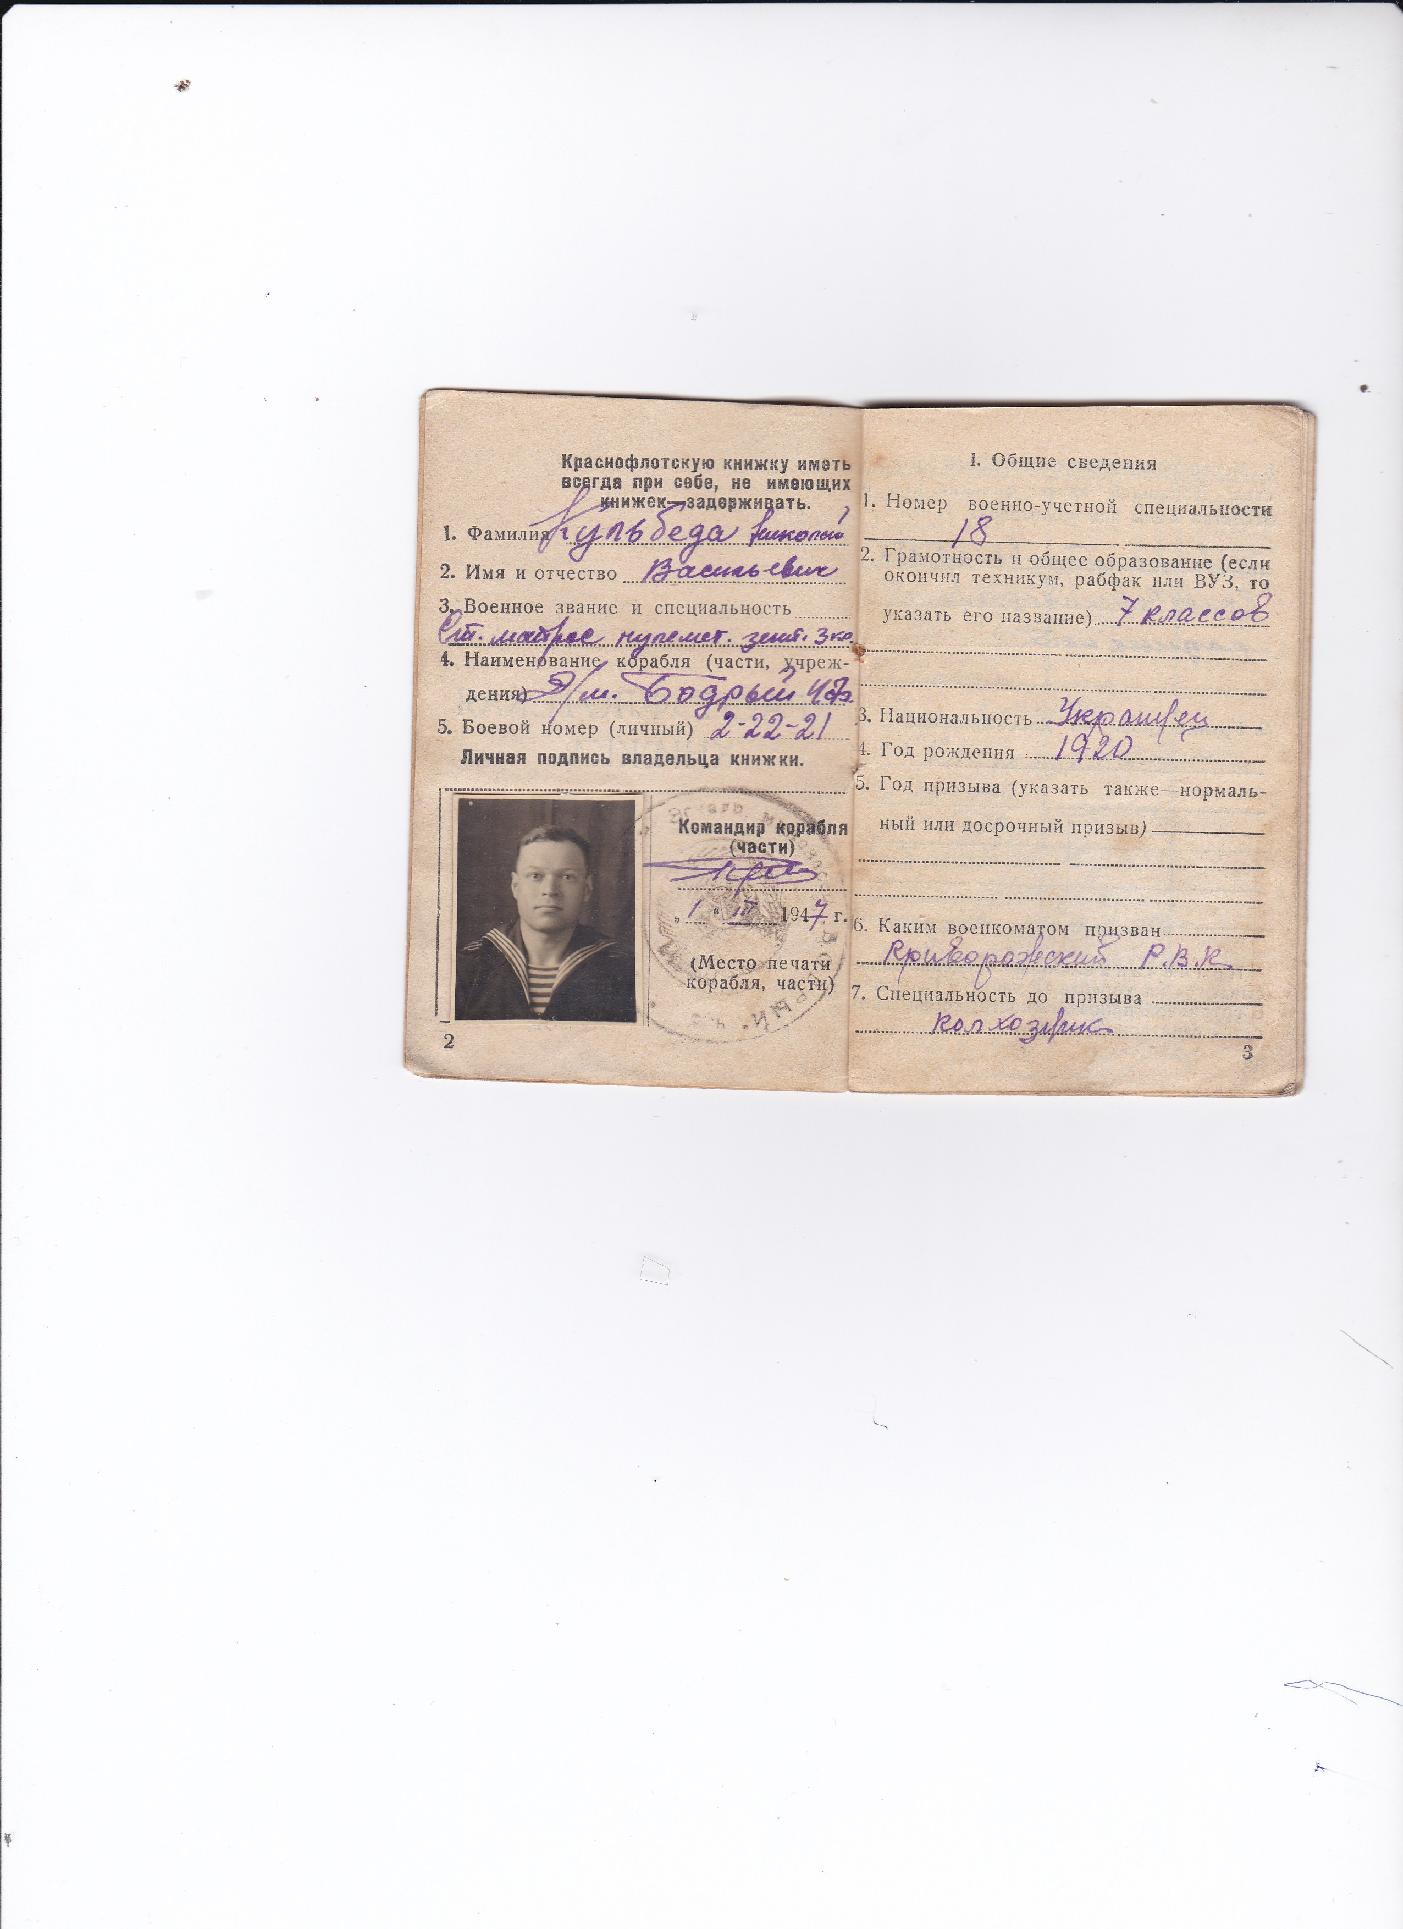 Краснофлотскую книжку иметь
всегда при себе, не имеющих
книжек—задерживать.
1. Фамилия Кульбеда Николай
2. Имя и отчество Васильевич
3. Военное звание и специальность
Ст. матрос пулемет. зенит. 3 кл.
4. Наименование корабля (части, учреж-
дения) Э/м. Бодрый ЧФ
5. Боевой номер (личный) 2-22-21
Личная подпись владельца книжки.
Командир корабля
(части)
„1“ IV 1947 г.
(Место печати
корабля, части)
2
I. Общие сведения
1. Номер военно-учетной специальности
18
2. Грамотность и общее образование (если
окончил техникум, рабфак или ВУЗ, то
указать его название) 7 классов
3. Национальность Украинец
4. Год рождения 1920
5. Год призыва (указать также нормаль-
ный или досрочный призыв)
6. Каким военкоматом призван
Криворожский Р.В.К.
7. Специальность до призыва
колхозник
3